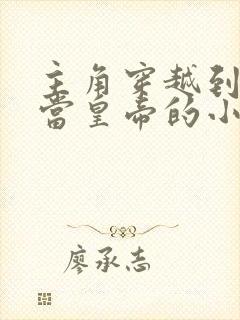 主角穿越到
当皇帝的小
廖承志